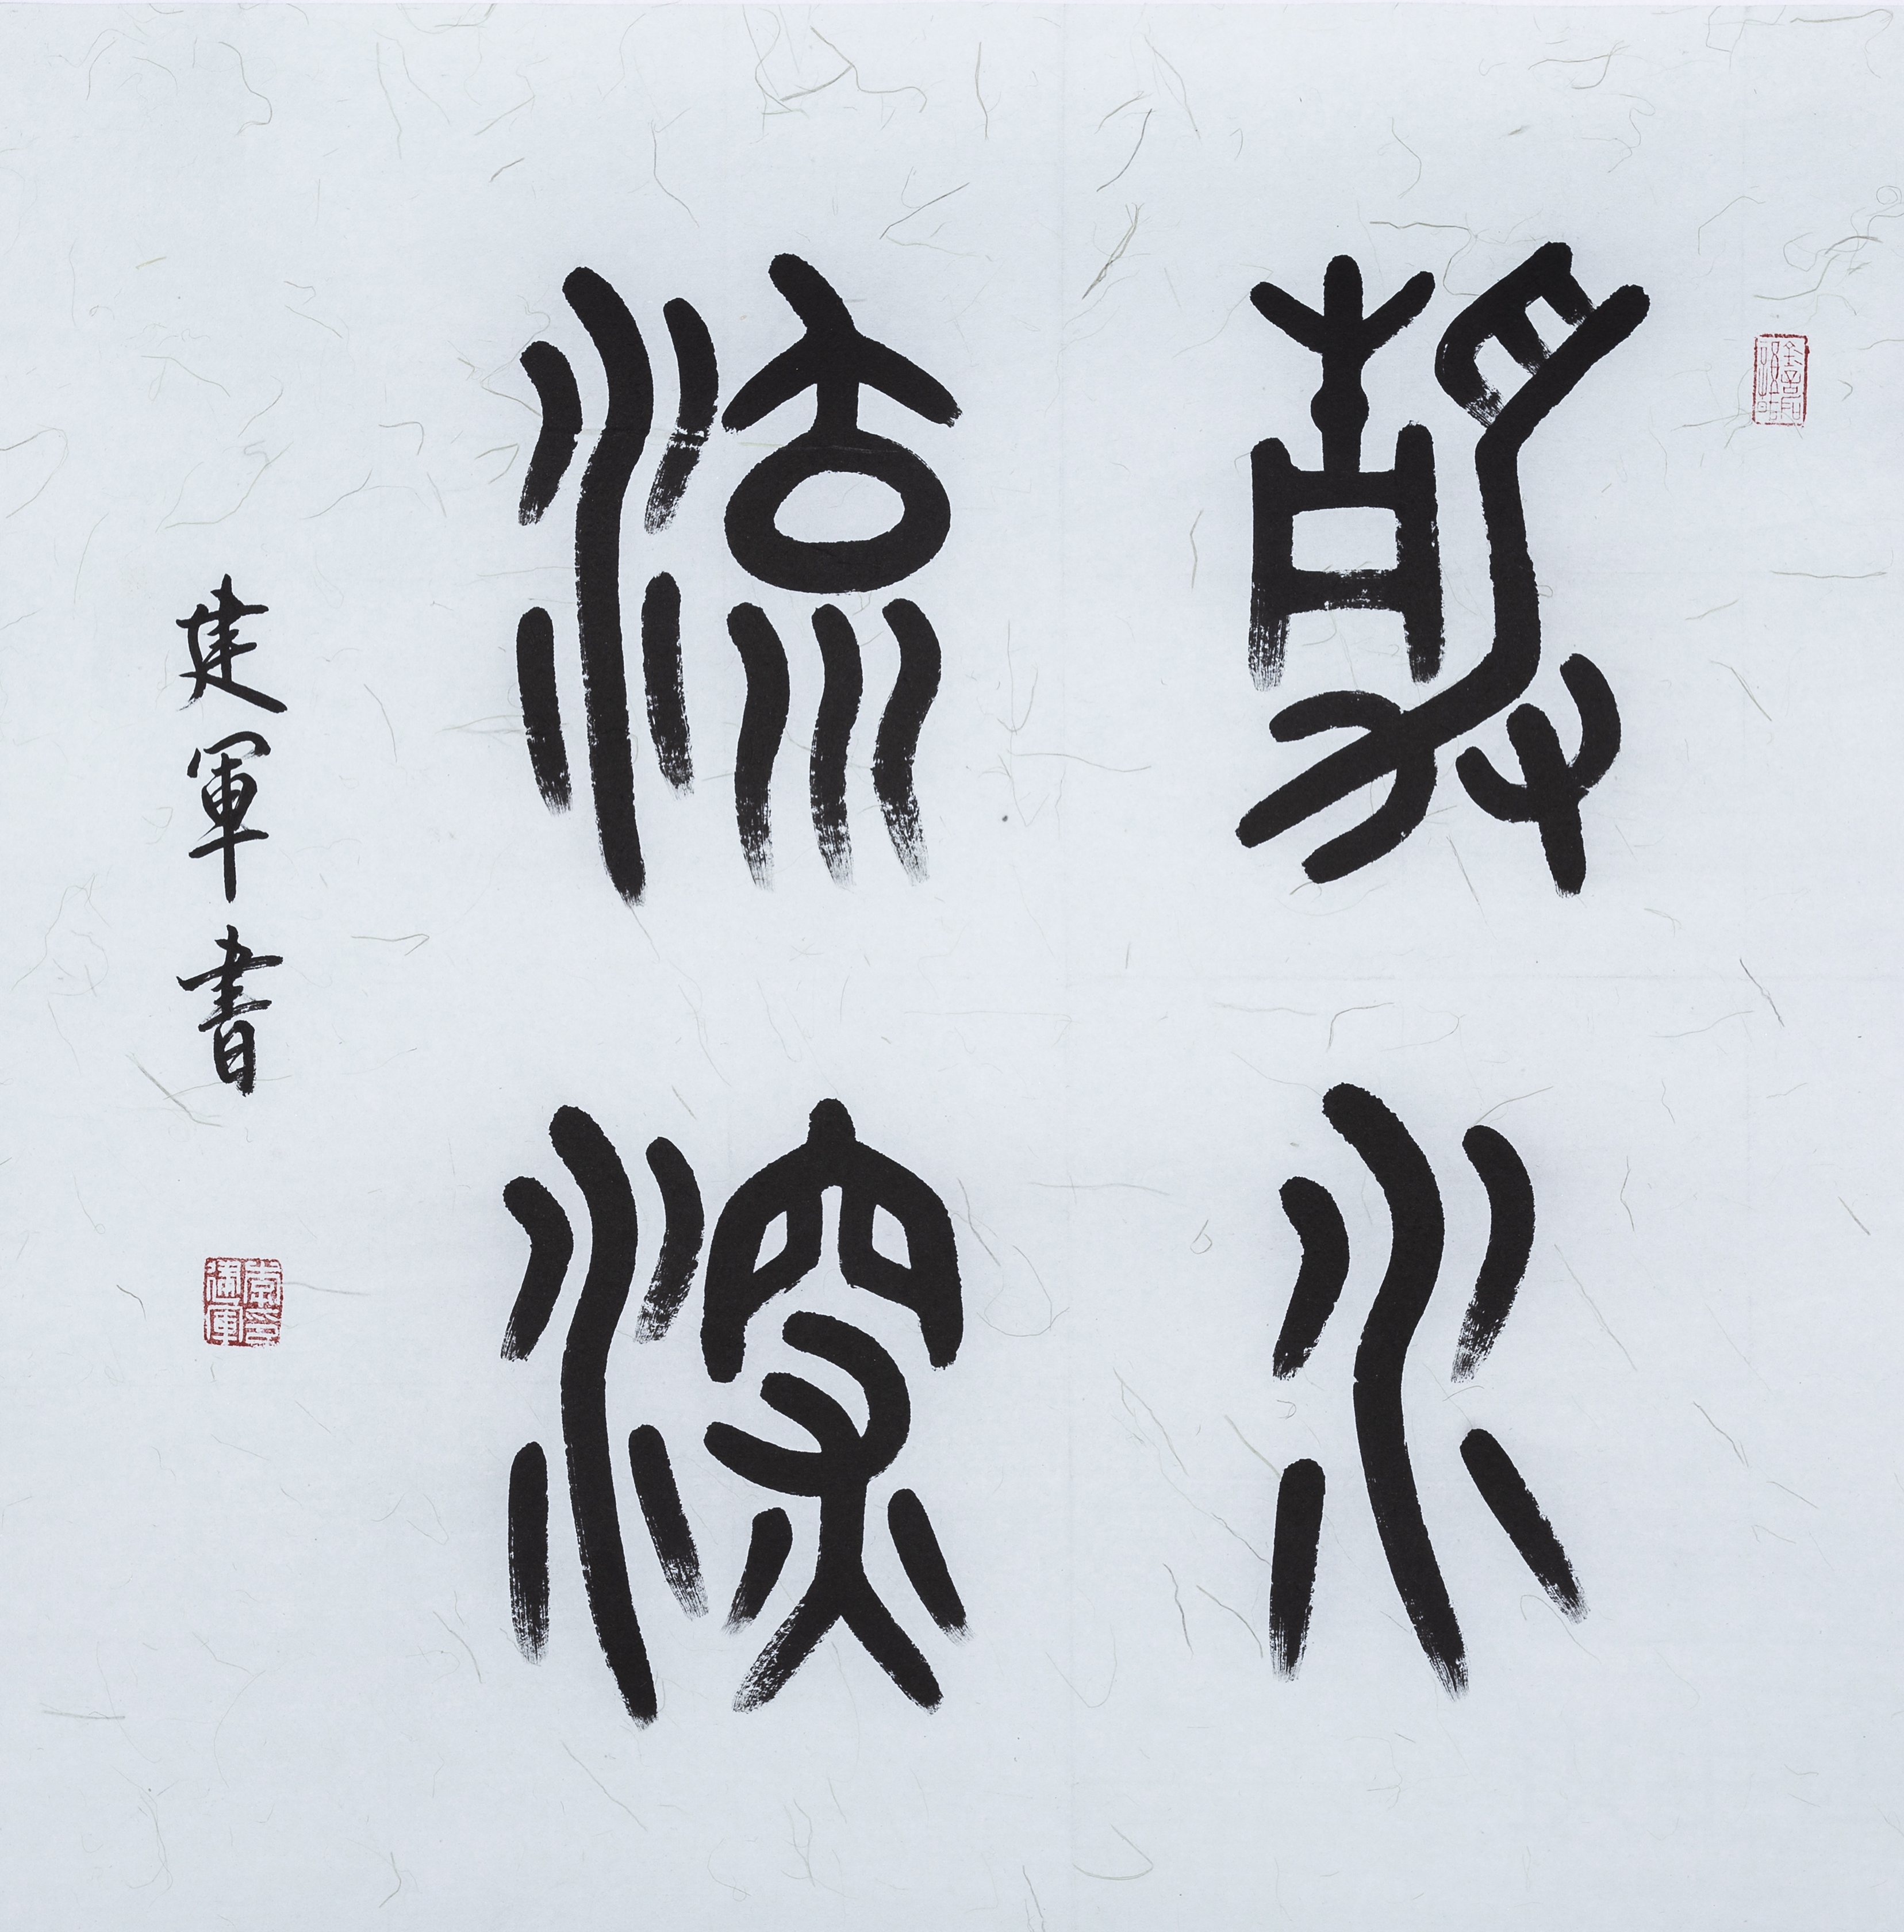 靜水
流深
建軍書